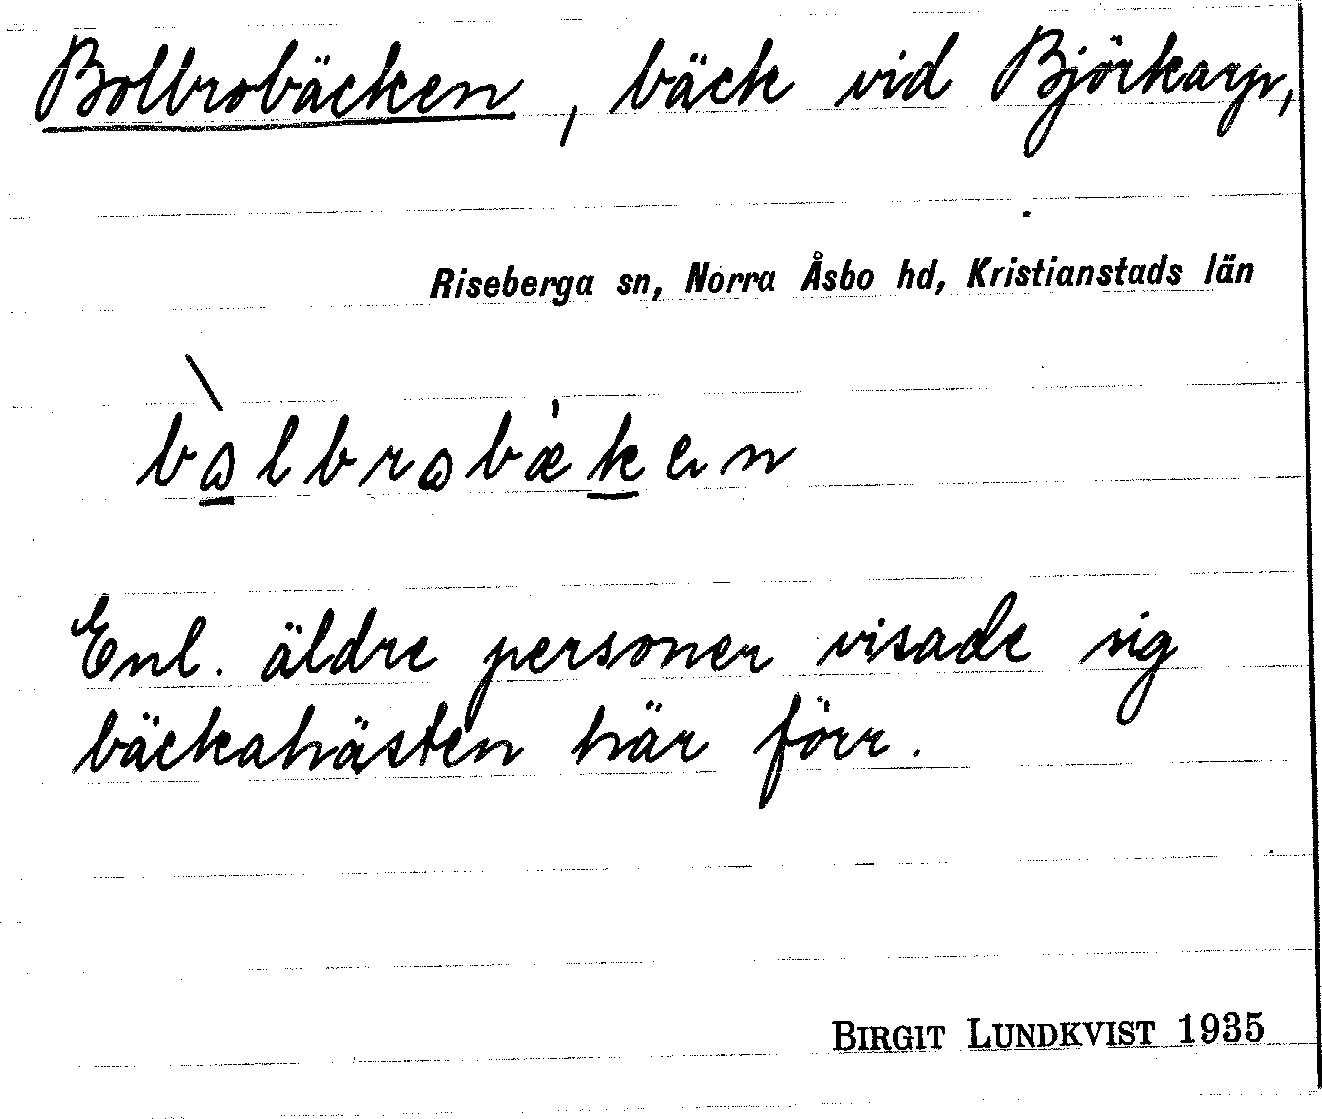 Bolbrobäcken, bäck vid Björkarp,
Riseberga sn, Norra Åsbo hd, Kristianstads län
Enl. äldre personer visade sig
bäckahästen här förr.
BIRGIT LUNDKVIST 1935